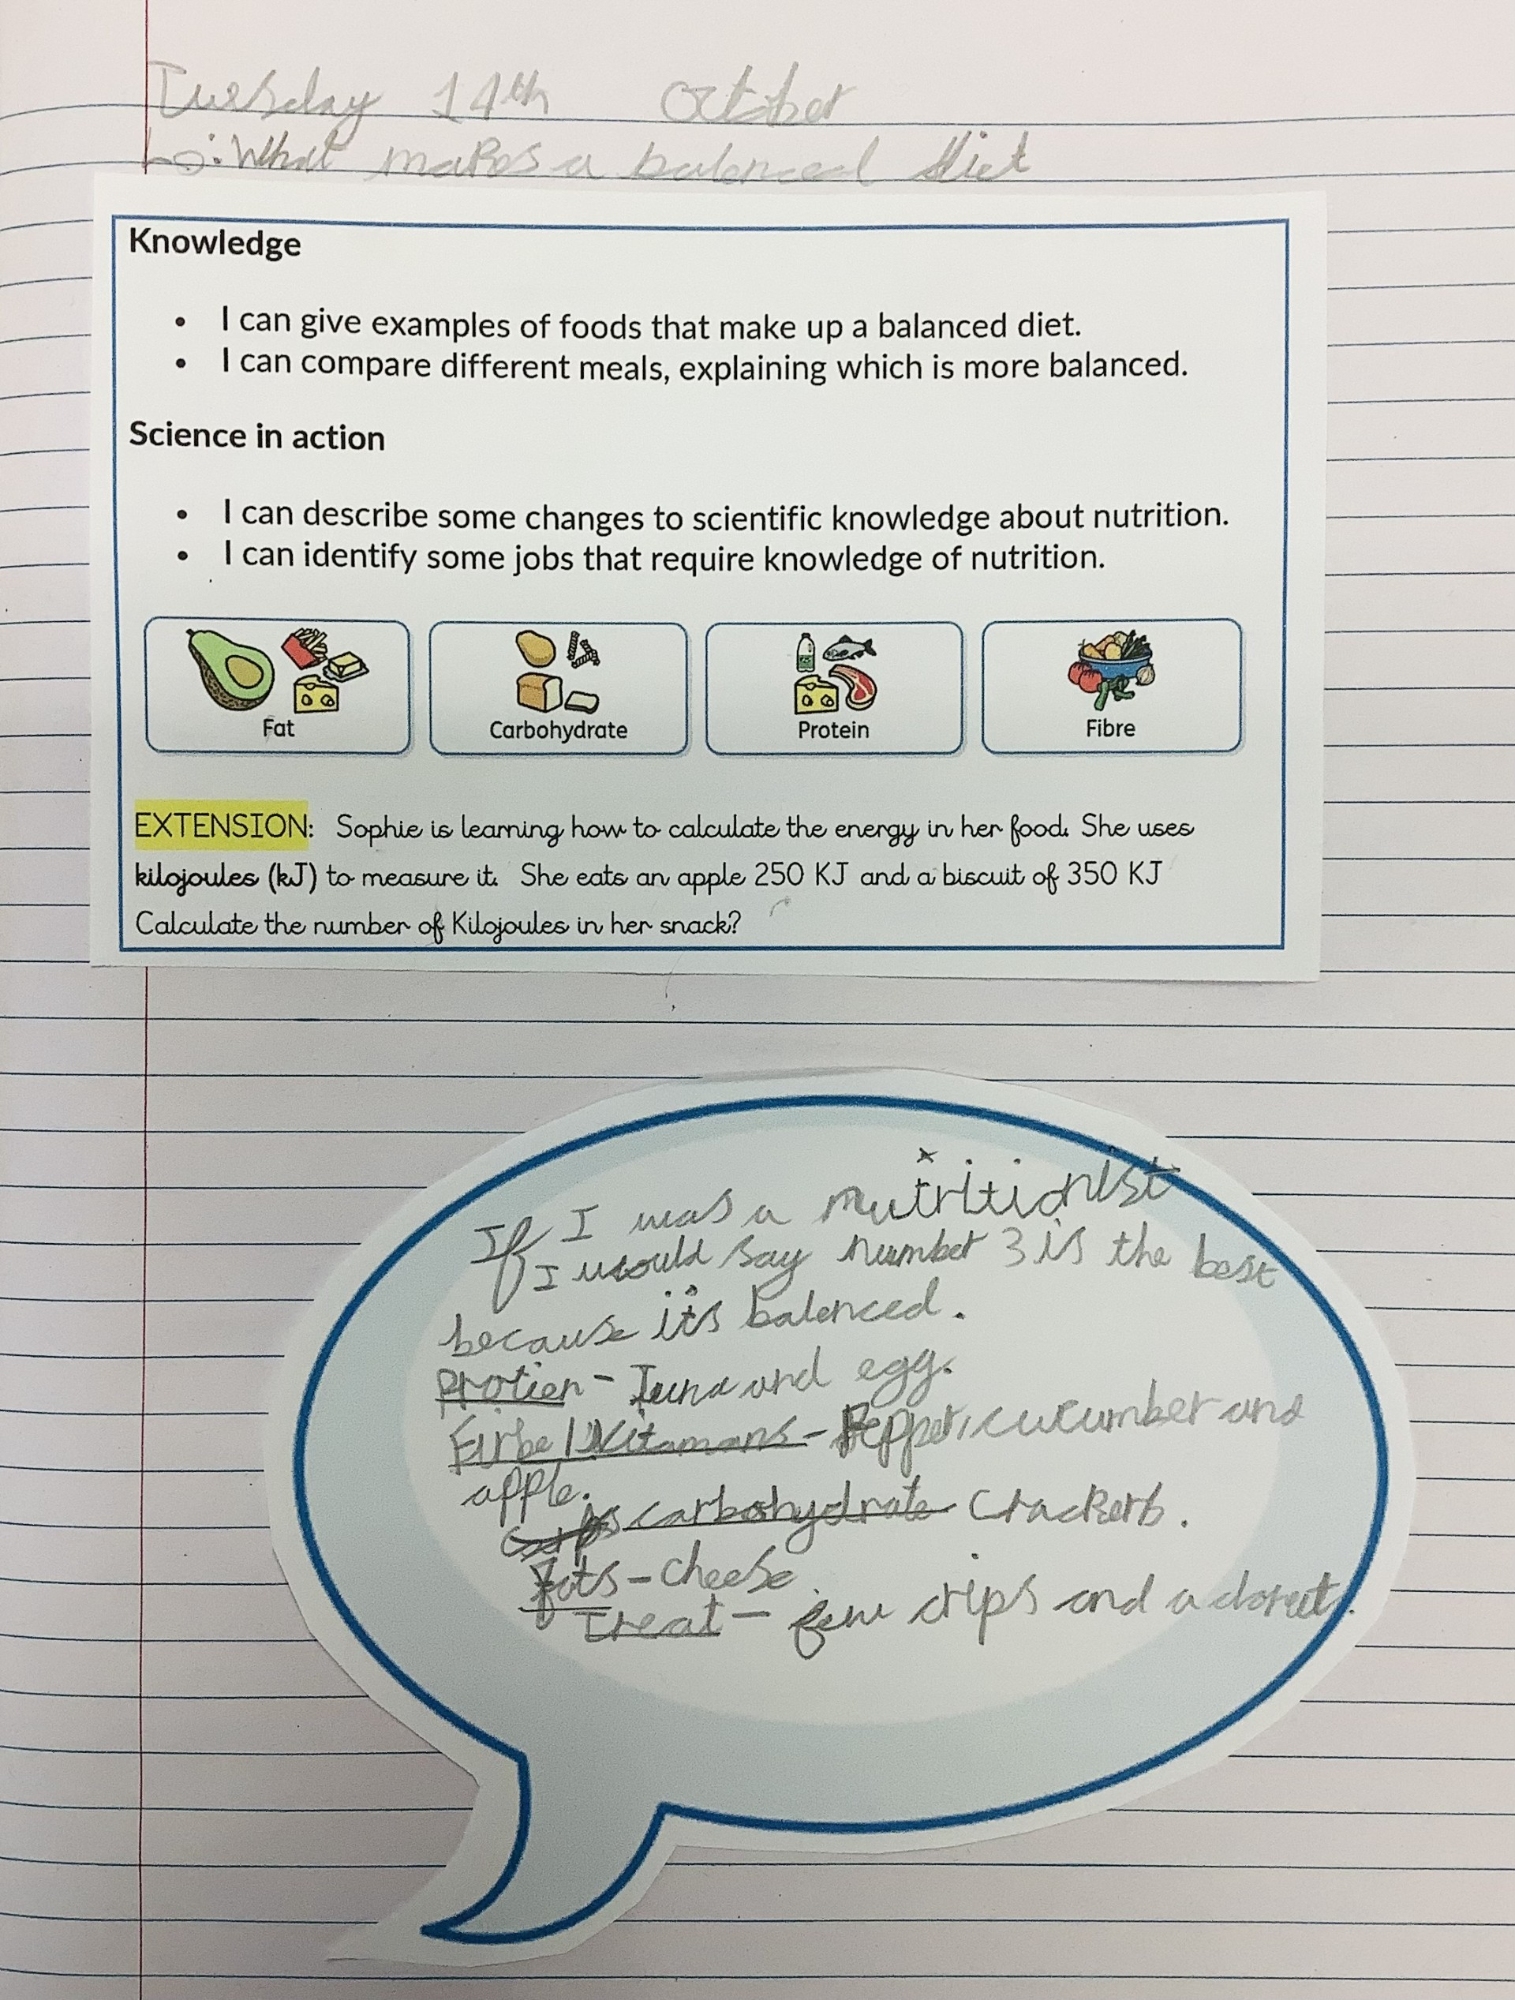 Tuesday 14th October
Lo: What makes a balenced diet
Knowledge
• I can give examples of foods that make up a balanced diet.
• I can compare different meals, explaining which is more balanced.
Science in action
• I can describe some changes to scientific knowledge about nutrition.
• I can identify some jobs that require knowledge of nutrition.
Fat Carbohydrate Protein Fibre
EXTENSION: Sophie is learning how to calculate the energy in her food. She uses
kilojoules (kJ) to measure it. She eats an apple 250 KJ and a biscuit of 350 KJ
Calculate the number of Kilojoules in her snack?
If I was a nutritionist
I would say number 3 is the best
because it's balenced.
Protien - Tuna and egg.
Firbe / Vitamans - Pepper, cucumber and
apple.
carbohydrate - Crackers.
Fats - cheese
Treat - few crips and a